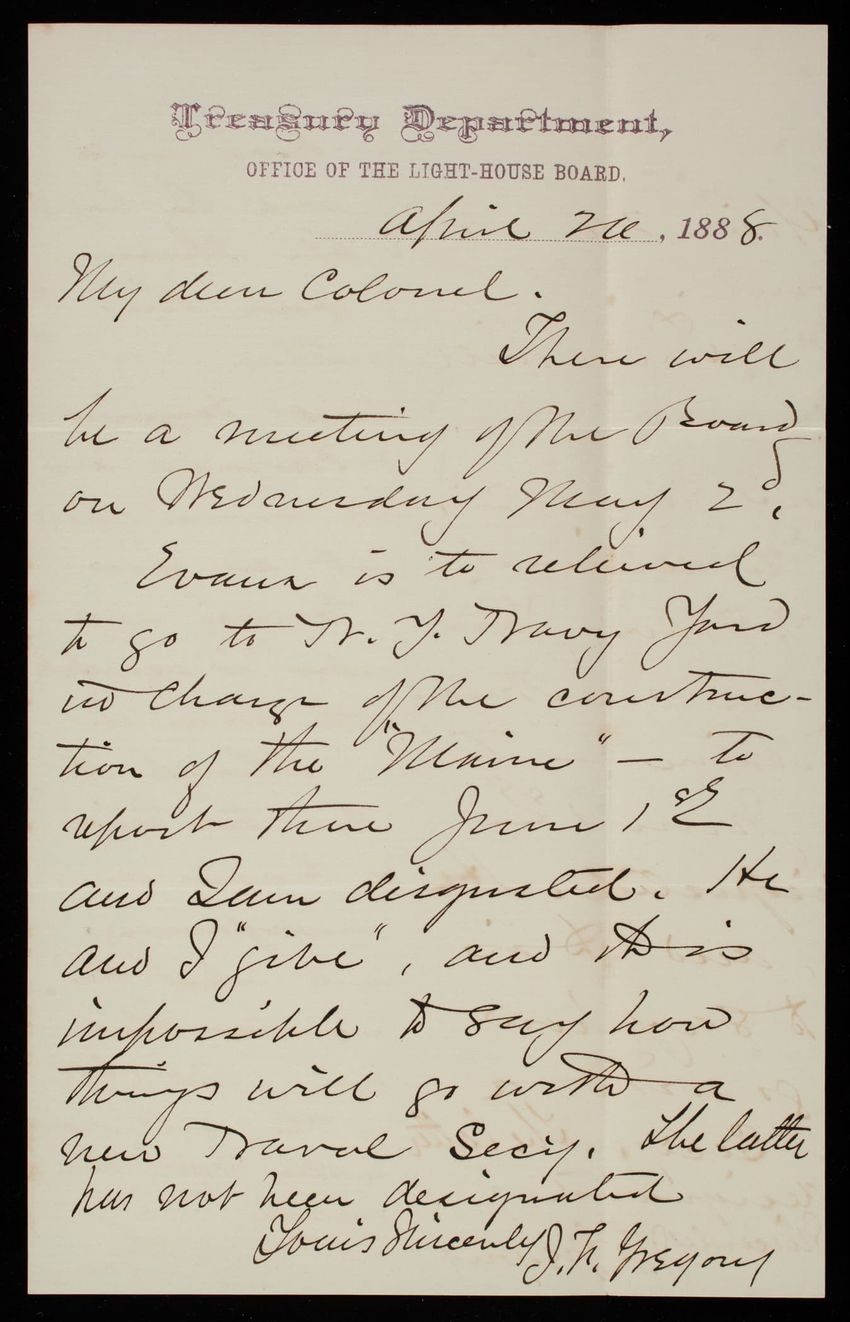 Treasury Department,
OFFICE OF THE LIGHT-HOUSE BOARD.
April 26, 1888.
My dear Colonel.
There will
be a meeting of the Board
on Wednesday May 2d.
Evans is to relieved
to go to N. Y. Navy Yard
in charge of the construc-
tion of the "Maine" — to
report there June 1st
and I am disgusted. He
and I "give", and it is
impossible to say how
things will go with a
new Naval Secy. The latter
has not been designated
Yours Sincerely J. F. Gregory